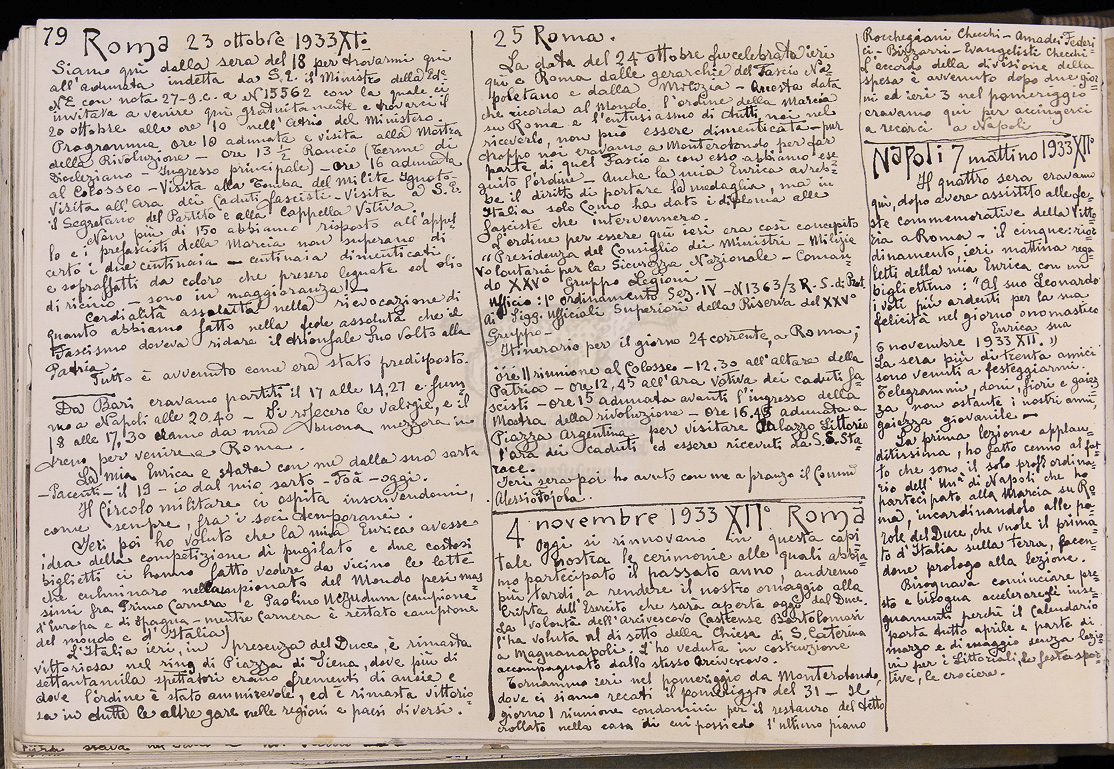 79 Roma 23 ottobre 1933 XI°
Siamo qui dalla sera del 18 per trovarmi qui
all'adunata indetta da S.E. il Ministro della Ed.
N.le con nota 27-9.c.a N 15562 con la quale ci
invitava a venire qui gratuitamente e trovarci il
20 ottobre alle ore 10 nell'Atrio del Ministero.
Programma. Ore 10 adunata e visita alla Mostra
della Rivoluzione - Ore 13 1/2 Rancio (Terme di
Diocleziano - Ingresso principale) - Ore 16 adunata
al Colosseo - Visita alla Tomba del Milite Ignoto-
Visita all'Ara dei Caduti fascisti - Visita a S.E.
il Segretario del Partito e alla Cappella Votiva.
Non più di 150 abbiamo risposto all'appel
lo e i prefascisti della Marcia non superano di
certo i due centinaia - centinaia dimenticati
e sopraffatti da coloro che presero legnate sol olio
di ricino - sono in maggioranza!!
Cordialità assoluta nella rievocazione di
quanto abbiamo fatto nella fede assoluta che il
Fascismo doveva ridare il trionfale Suo volto alla
Patria.
Tutto è avvenuto come era stato predisposto.
Da Bari eravamo partiti il 17 alle 14,27 e fum
mo a Napoli alle 20.40 - Si rifecero le valigie, e il
18 alle 17,30 eramo da una buona mezzora in
treno per venire a Roma
La mia Enrica è stata con me dalla sua sarta
- Pacenti - il 19 - io dal mio sarto - Foà - oggi.
Il Circolo militare ci ospita inscrivendomi,
come sempre, fra i soci temporanei.
Ieri poi ho voluto che la mia Enrica avesse
idea della competizione di pugilato e due costosi
biglietti ci hanno fatto vedere da vicino le lotte
che culminaro nel campionato del Mondo pesi mas
simi fra Primo Carnera e Paolino Uzcudum (campione
d'Europa e di Spagna - mentre Carnera è restato campione
del mondo e d'Italia)
L'Italia ieri, in presenza del Duce, è rimasta
vittoriosa nel ring di Piazza di Siena, dove più di
settantamila spettatori erano frementi di ansie e
dove l'ordine è stato ammirevole, ed è rimasta vittorio
sa in tutte le altre gare nelle regioni e paesi diversi.
25 Roma.
La data del 24 ottobre fu celebrata ieri
qui a Roma dalle gerarchie del Fascio Na-
poletano e dalla Milizia - Questa data
che ricorda al Mondo l'ordine della Marcia
su Roma e l'entusiasmo di tutti noi nel
riceverlo, non può essere dimenticata - pur
troppo noi eravamo a Monterotondo per far
parte di quel Fascio e con esso abbiamo ese
guito l'ordine - Anche la mia Enrica avreb-
be il diritto di portare la medaglia, ma in
Italia solo Como ha dato i diplomi alle
fasciste che intervennero.
L'ordine per essere qui ieri era così concepito
"Presidenza del Consiglio dei Ministri - Milizia
Volontaria per la Sicurezza Nazionale - Coman-
do XXV° Gruppo Legioni
Ufficio: 1° ordinamento Sez. IV - N 1363/3 R - S. di Prot
Ai Sigg. Ufficiali Superiori della Riserva del XXV°
Gruppo -
Itinerario per il giorno 24 corrente a Roma;
ore 11 riunione al Colosseo - 12,30 all'altare della
Patria - Ore 12,45 all'Ara Votiva dei caduti fa-
scisti - Ore 15 adunata avanti l'ingresso della
Mostra della rivoluzione - Ore 16,45 adunata a
Piazza Argentina per visitare Palazzo Littorio
l'ara dei Caduti ed essere ricevuti da S.E. Sta
race.
Ieri sera poi ho avuto con me a pranzo il Comm.
Alessio Tojola.
4 novembre 1933 XII° Roma
Oggi si rinnovano in questa capi
tale nostra le cerimonie alle quali abbia
mo partecipato il passato anno, andremo
più tardi a rendere il nostro omaggio alla
Cripta dell'Esercito che sarà aperta oggi dal Duce.
La voluta dell'Arcivescovo Castrense Bartolomasi
l'ha voluta al di sotto della Chiesa di S. Caterina
a Magnanapoli. L'ho veduta in costruzione
accompagnato dallo stesso Arcivescovo.
Tornammo ieri nel pomeriggio da Monterotondo,
dove ci siamo recati il pomeriggio del 31 - Il
giorno 1 riunione condomini per il restauro del tetto
crollato nella casa di cui possiedo l'ultimo piano
Rocchegiani Checchi - Amadei Federi
ci - Bizzarri - Evangeliste Checchi -
L'accordo della divisione della
spesa è avvenuto dopo due gior
ni ed ieri 3 nel pomeriggio
eravamo qui per accingerci
a recarci a Napoli
Napoli 7 mattino 1933 XII°
Il quattro sera eravamo
qui, dopo avere assistito alle fe-
ste commemorative della Vitto
ria a Roma - il cinque: rior
dinamento, ieri mattina rega
letti della mia Enrica con un
bigliettino: "Al suo Leonardo
i voti più ardenti per la sua
felicità nel giorno onomastico
Enrica sua
6 novembre 1933 XII."
La sera più di trenta amici
sono venuti a festeggiarmi.
Telegrammi, doni, fiori e gaiez
za, non ostante i nostri anni,
gaiezza giovanile -
La prima lezione applau
ditissima, ho fatto cenno al fat
to che sono il solo prof. ordina
rio dell'Un.tà di Napoli che ha
partecipato alla Marcia su Ro
ma, incardinandolo alle pa-
role del Duce, che vuole il prima
to d'Italia sulla terra, facen
done prologo alla lezione.
Bisognava cominciare pre
sto e bisogna accelerare gli inse-
gnamenti perchè il Calendario
porta tutto aprile e parte di
marzo e di maggio senza lezio
ni per i Littoriali, le feste spor
tive, le crociere.